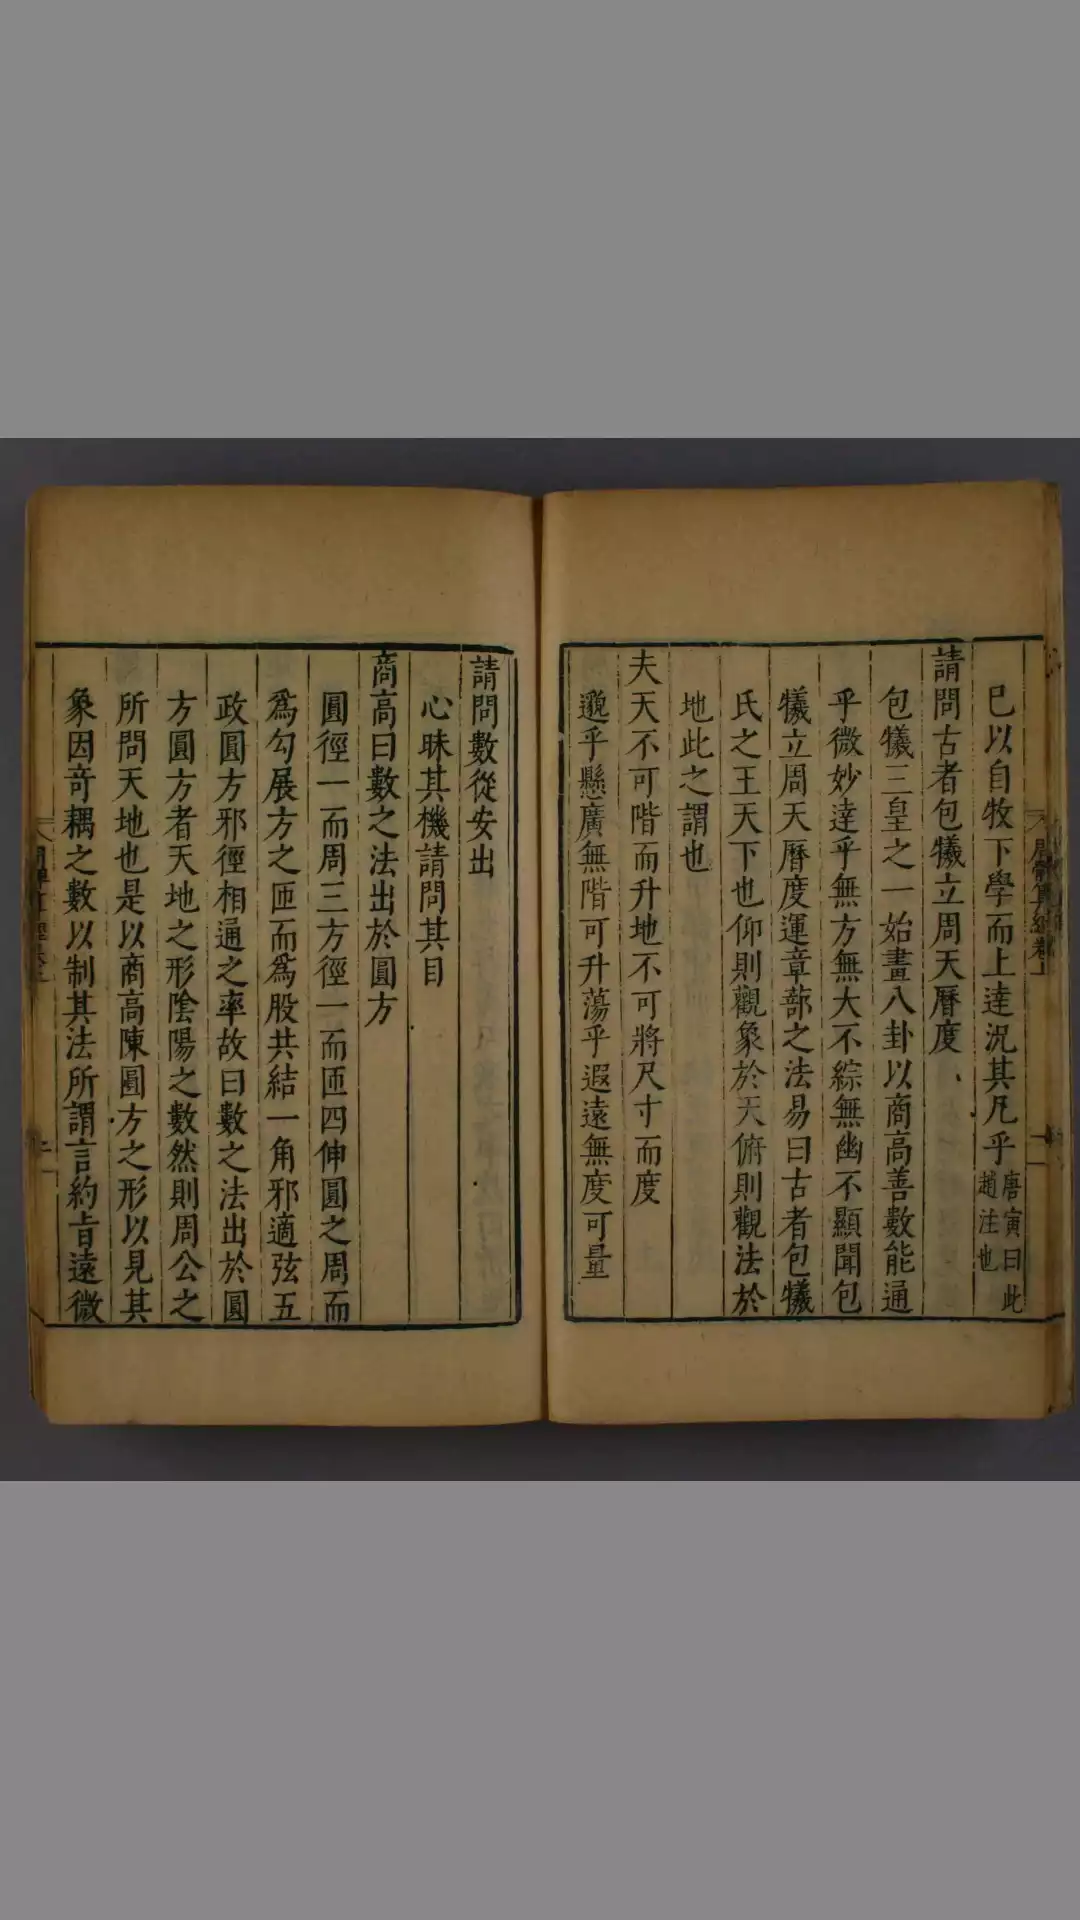 已以自牧下學而上達況其凡乎唐寅曰此趙注也
請問古者包犧立周天曆度
包犧三皇之一始畫八卦以商高善數能通
乎微妙達乎無方無大不綜無幽不顯聞包
犧立周天曆度運章蔀之法易曰古者包犧
氏之王天下也仰則觀象於天俯則觀法於
地此之謂也
夫天不可階而升地不可將尺寸而度
邈乎懸廣無階可升蕩乎遐遠無度可量
請問數從安出
心昧其機請問其目
商高曰數之法出於圓方
圓徑一而周三方徑一而匝四伸圓之周而
爲勾展方之匝而爲股共結一角邪適弦五
政圓方邪徑相通之率故曰數之法出於圓
方圓方者天地之形陰陽之數然則周公之
所問天地也是以商高陳圓方之形以見其
象因奇耦之數以制其法所謂言約旨遠微